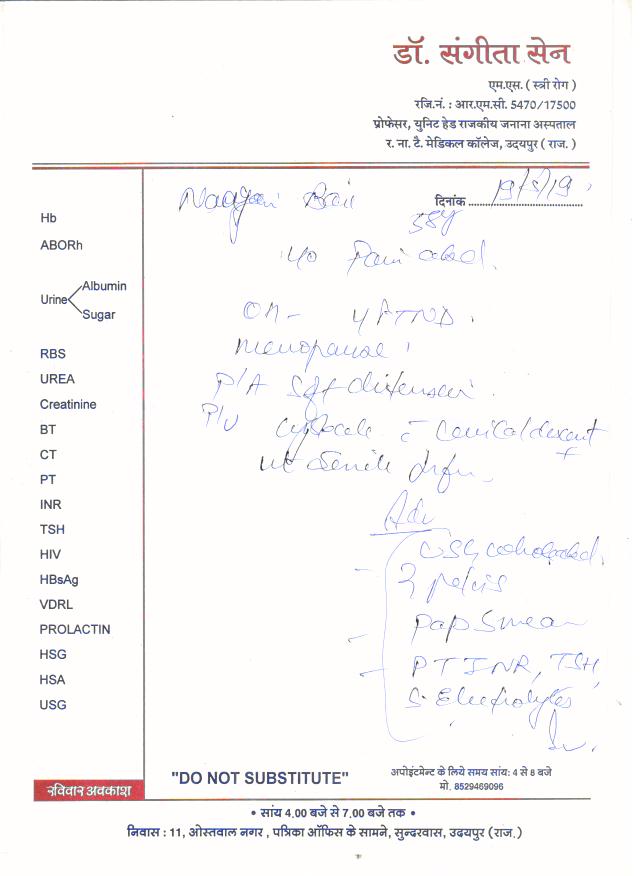 डॉ. संगीता सेन
एम.एस. ( स्त्री रोग )
रजि.नं. : आर.एम.सी. 5470/17500
प्रोफेसर, युनिट हेड राजकीय जनाना अस्पताल
र. ना. टै. मेडिकल कॉलेज, उदयपुर ( राज. )
दिनांक 19/5/19
Bai
58y
Pain abd.
O/H - 4FTND.
Menopausal
P/A Soft distension.
P/V Cystocele c̄ Cervical descent +
ut Senile
Adv
USG whole abd.
& pelvis
Pap Smear
PT INR, TSH
S. Electrolytes
Hb
ABORh
Urine Albumin
Sugar
RBS
UREA
Creatinine
BT
CT
PT
INR
TSH
HIV
HBsAg
VDRL
PROLACTIN
HSG
HSA
USG
रविवार अवकाश
"DO NOT SUBSTITUTE"
अपोइंटमेन्ट के लिये समय सांय: 4 से 8 बजे
मो. 8529469096
• सांय 4.00 बजे से 7.00 बजे तक •
निवास : 11, ओस्तवाल नगर , पत्रिका ऑफिस के सामने, सुन्दरवास, उदयपुर (राज.)